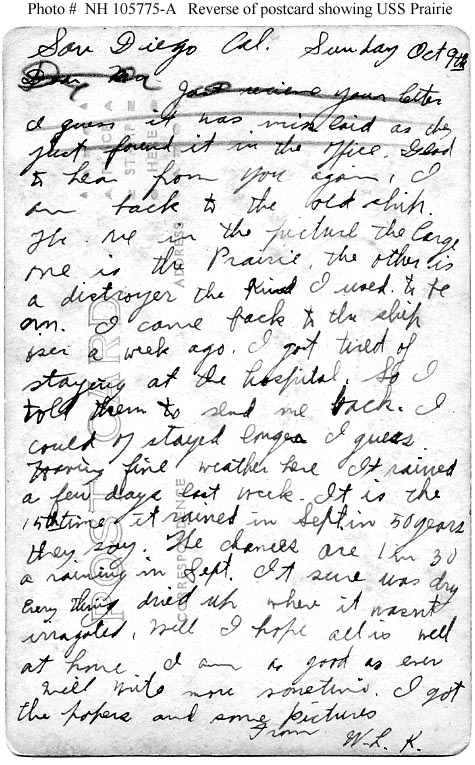 Photo # NH 105775-A Reverse of postcard showing USS Prairie
San Diego Cal. Sunday Oct 9th
Dear
Just recieve your letter
I guess it was mis laid as they
just found it in the office. Glad
to hear from you again, I
am back to the old ship.
The ne in the picture the large
one is the Prairie, the other is
a distroyer the kind I used to be
on. I came back to the ship
over a week ago. I got tired of
staying at the hospital, So I
told them to send me back. I
could of stayed longer I guess
Having fine weather here It rained
a few days last week. It is the
15th time it rained in Sept in 50 years
they say. The chances are 1 in 30
a raining in Sept. It sure was dry
Every thing dried up where it wasnt
irragated, Well I hope all is well
at home I am as good as ever
Will write more sometime. I got
the papers and some pictures
From W. L. K.
POST CARD
CORRESPONDENCE
ADDRESS